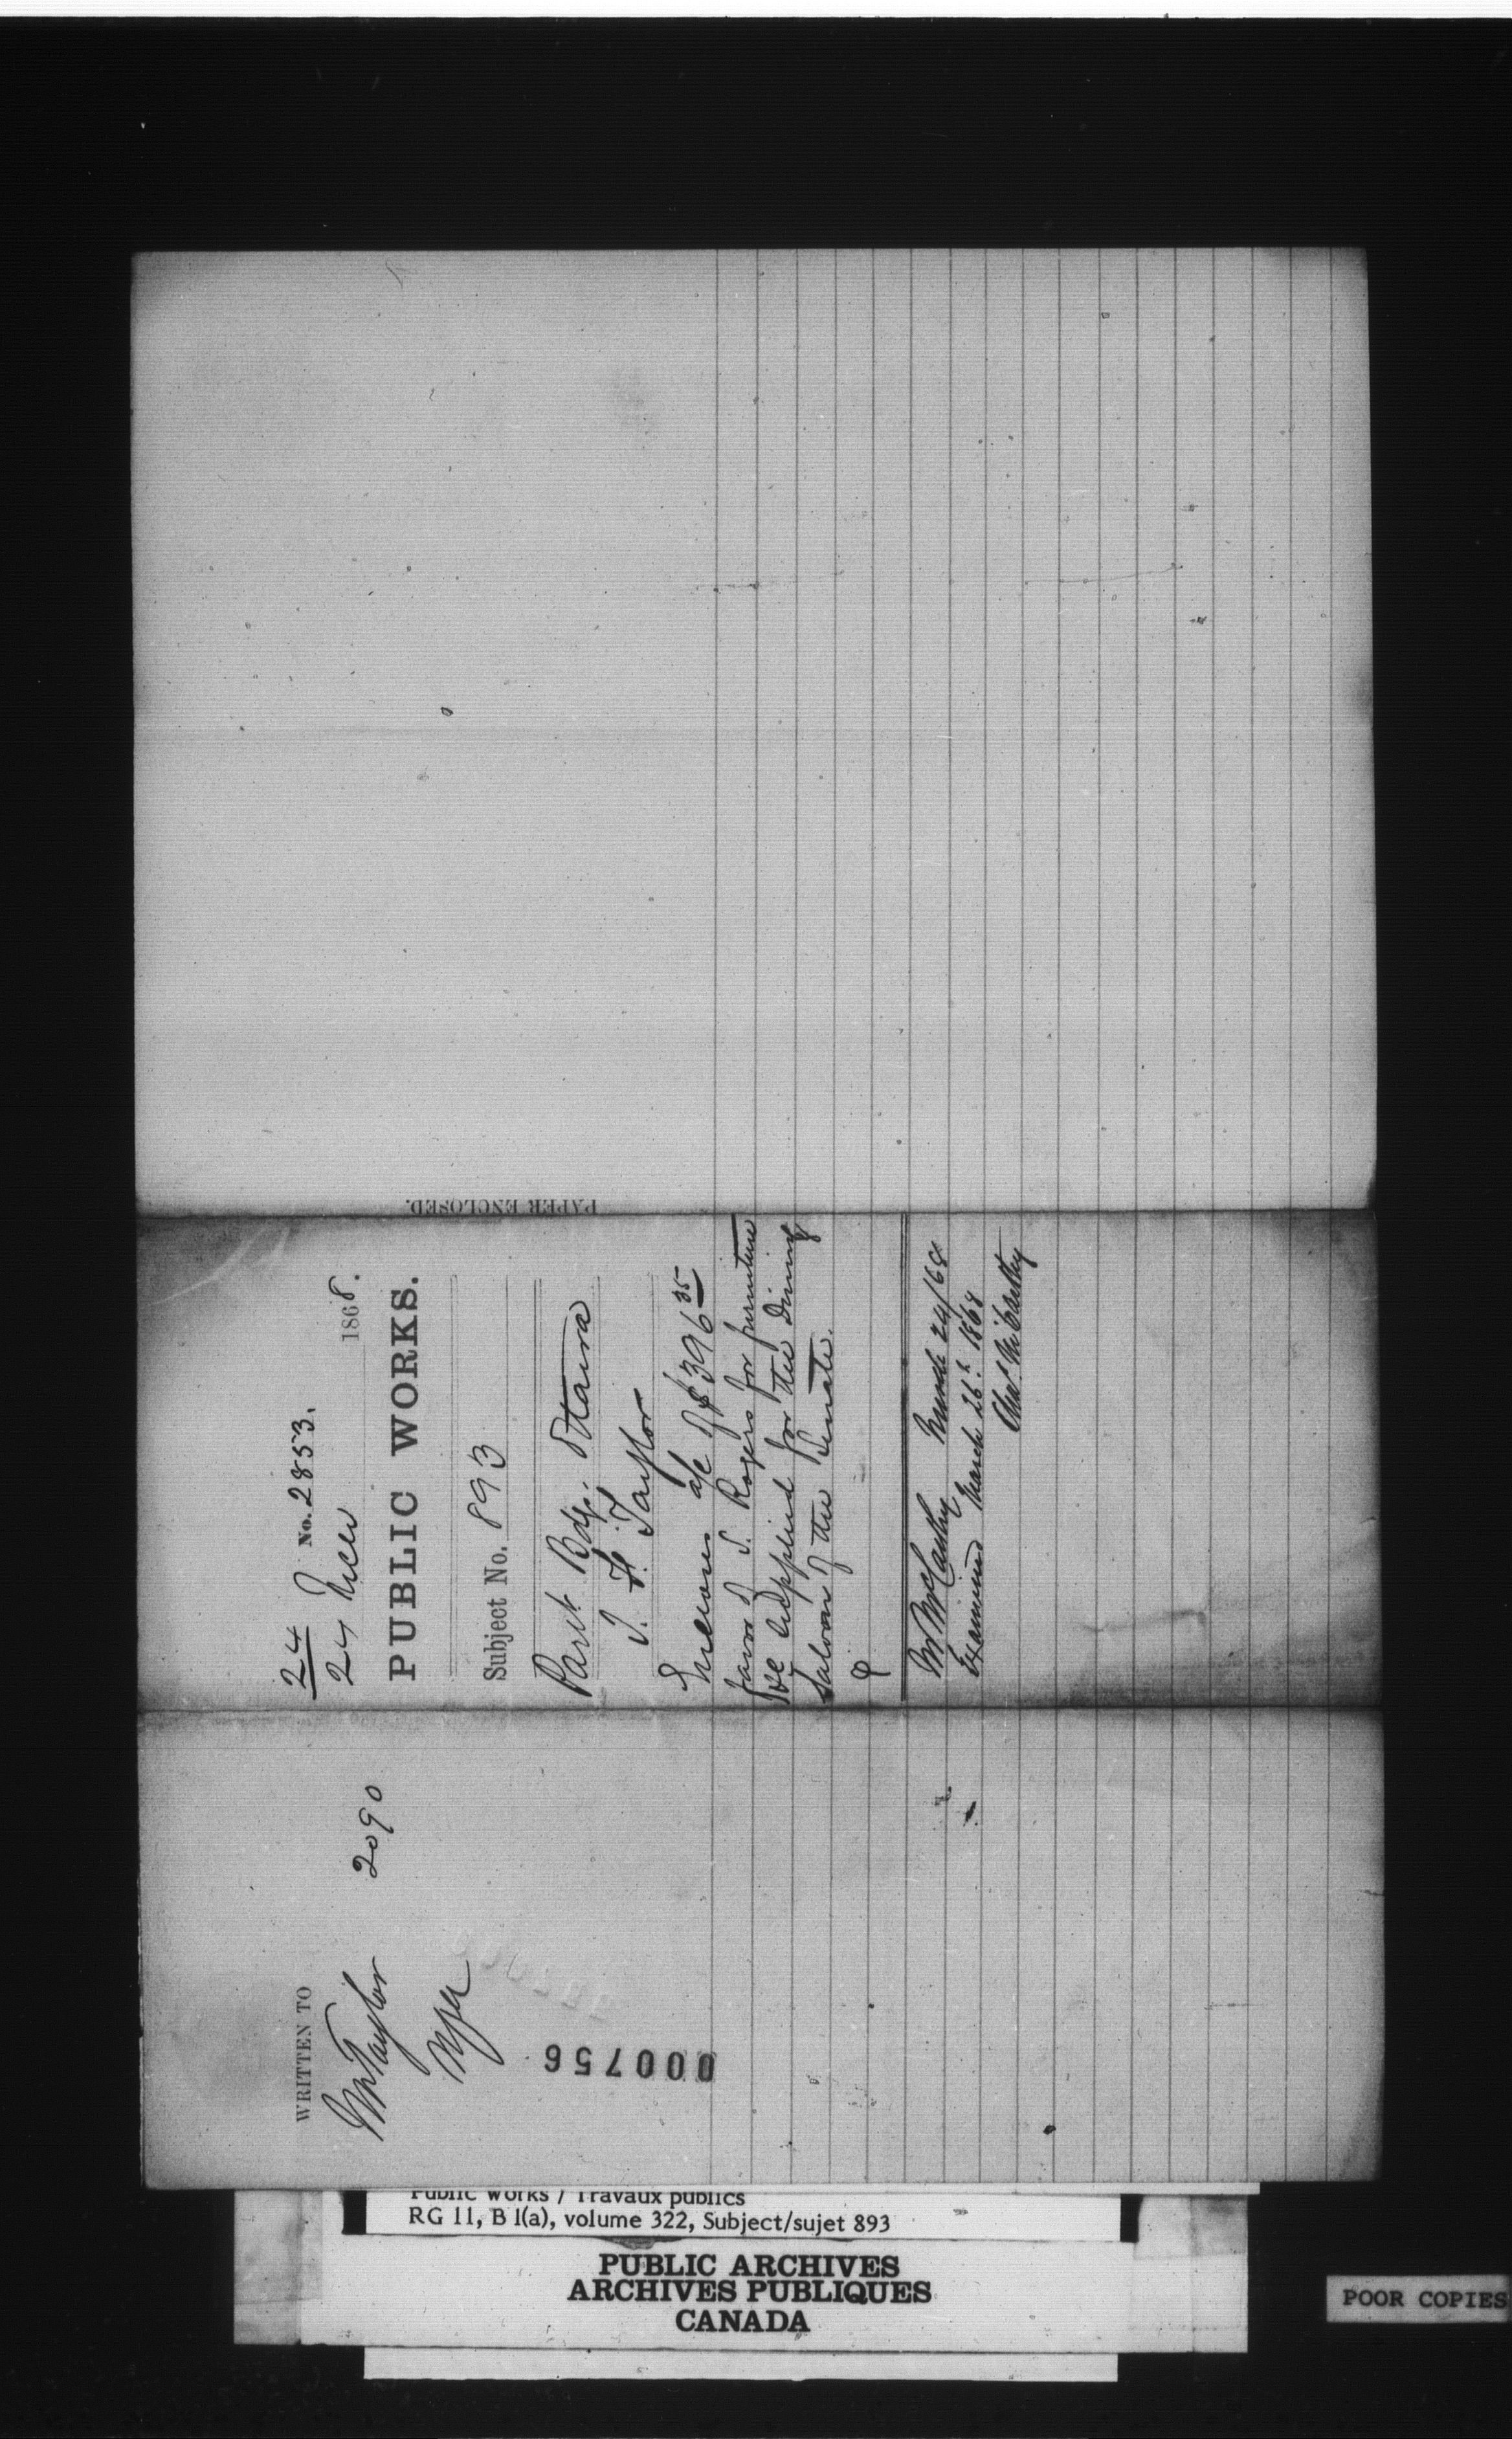 24 No. 2853.
24 Mch 1868.
PUBLIC WORKS.
Subject No. 893
Parlt. Bdgs. Ottawa
J. F. Taylor
Encloses a/c of $396 35
favor of S. Rogers for furniture
&c supplied for the Dining
Saloon of the Senate.
Mr McCarthy March 24/68
Examined March 26th. 1868
Chas McCarthy
PAPER ENCLOSED.
WRITTEN TO
Mr Taylor 2090
000756
Public Works / Travaux publics
RG 11, B 1(a), volume 322, Subject/sujet 893
PUBLIC ARCHIVES
ARCHIVES PUBLIQUES
CANADA
POOR COPIES